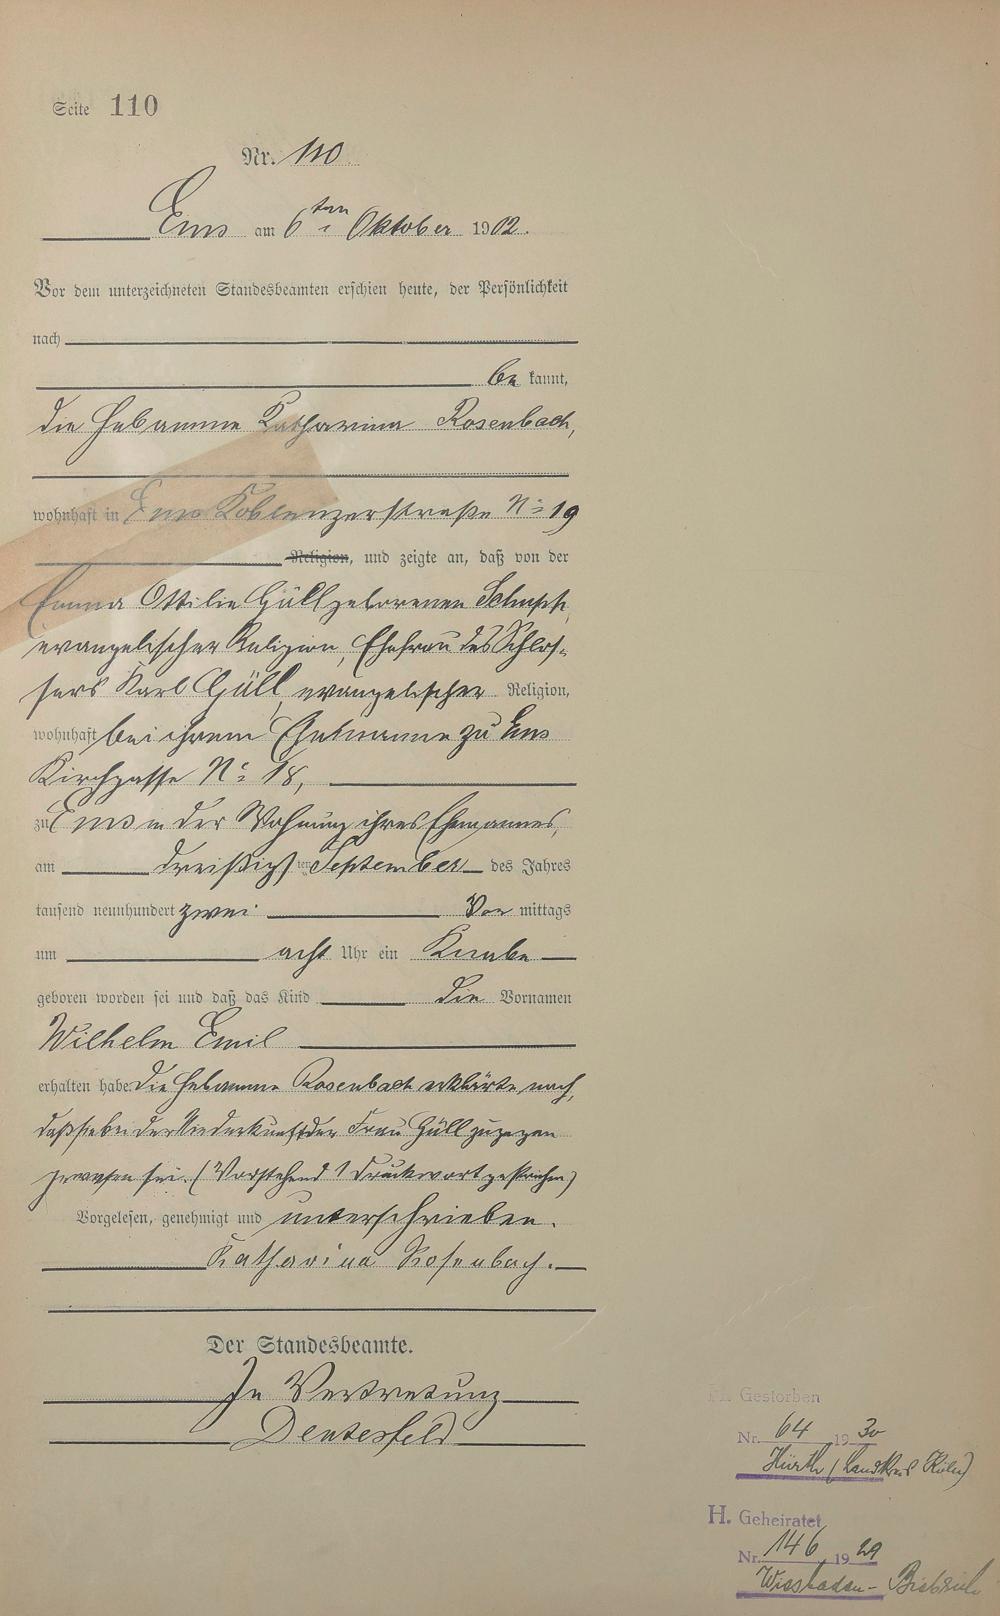 Seite 110
Nr. 110
Ems am 6ten Oktober 1902.
Vor dem unterzeichneten Standesbeamten erschien heute, der Persönlichkeit
nach
be kannt,
die Hebamme Katharina Rosenbach,
wohnhaft in Ems Koblenzerstraße No 19
Religion, und zeigte an, daß von der
Emma Ottilie Güll geborenen Schupp,
evangelischer Religion, Ehefrau des Schlos-
sers Karl Güll, evangelischer Religion,
wohnhaft bei ihrem Ehemanne zu Ems
Kirchgasse No 18,
zu Ems in der Wohnung ihres Ehemannes,
am dreißigsten September des Jahres
tausend neunhundert zwei Vor mittags
um acht Uhr ein Knabe
geboren worden sei und daß das Kind die Vornamen
Wilhelm Emil
erhalten habe. Die Hebamme Rosenbach erklärte noch,
daß sie bei der Niederkunft der Frau Güll zugegen
gewesen sei. (Vorstehend 1 Druckwort gestrichen)
Vorgelesen, genehmigt und unterschrieben.
Katharina Rosenbach.
Der Standesbeamte.
In Vertretung
Deutesfeld
H. Gestorben
Nr. 64 1930
Hürth (Landkreis Köln)
H. Geheiratet
Nr. 146 1929
Wiesbaden-Biebrich